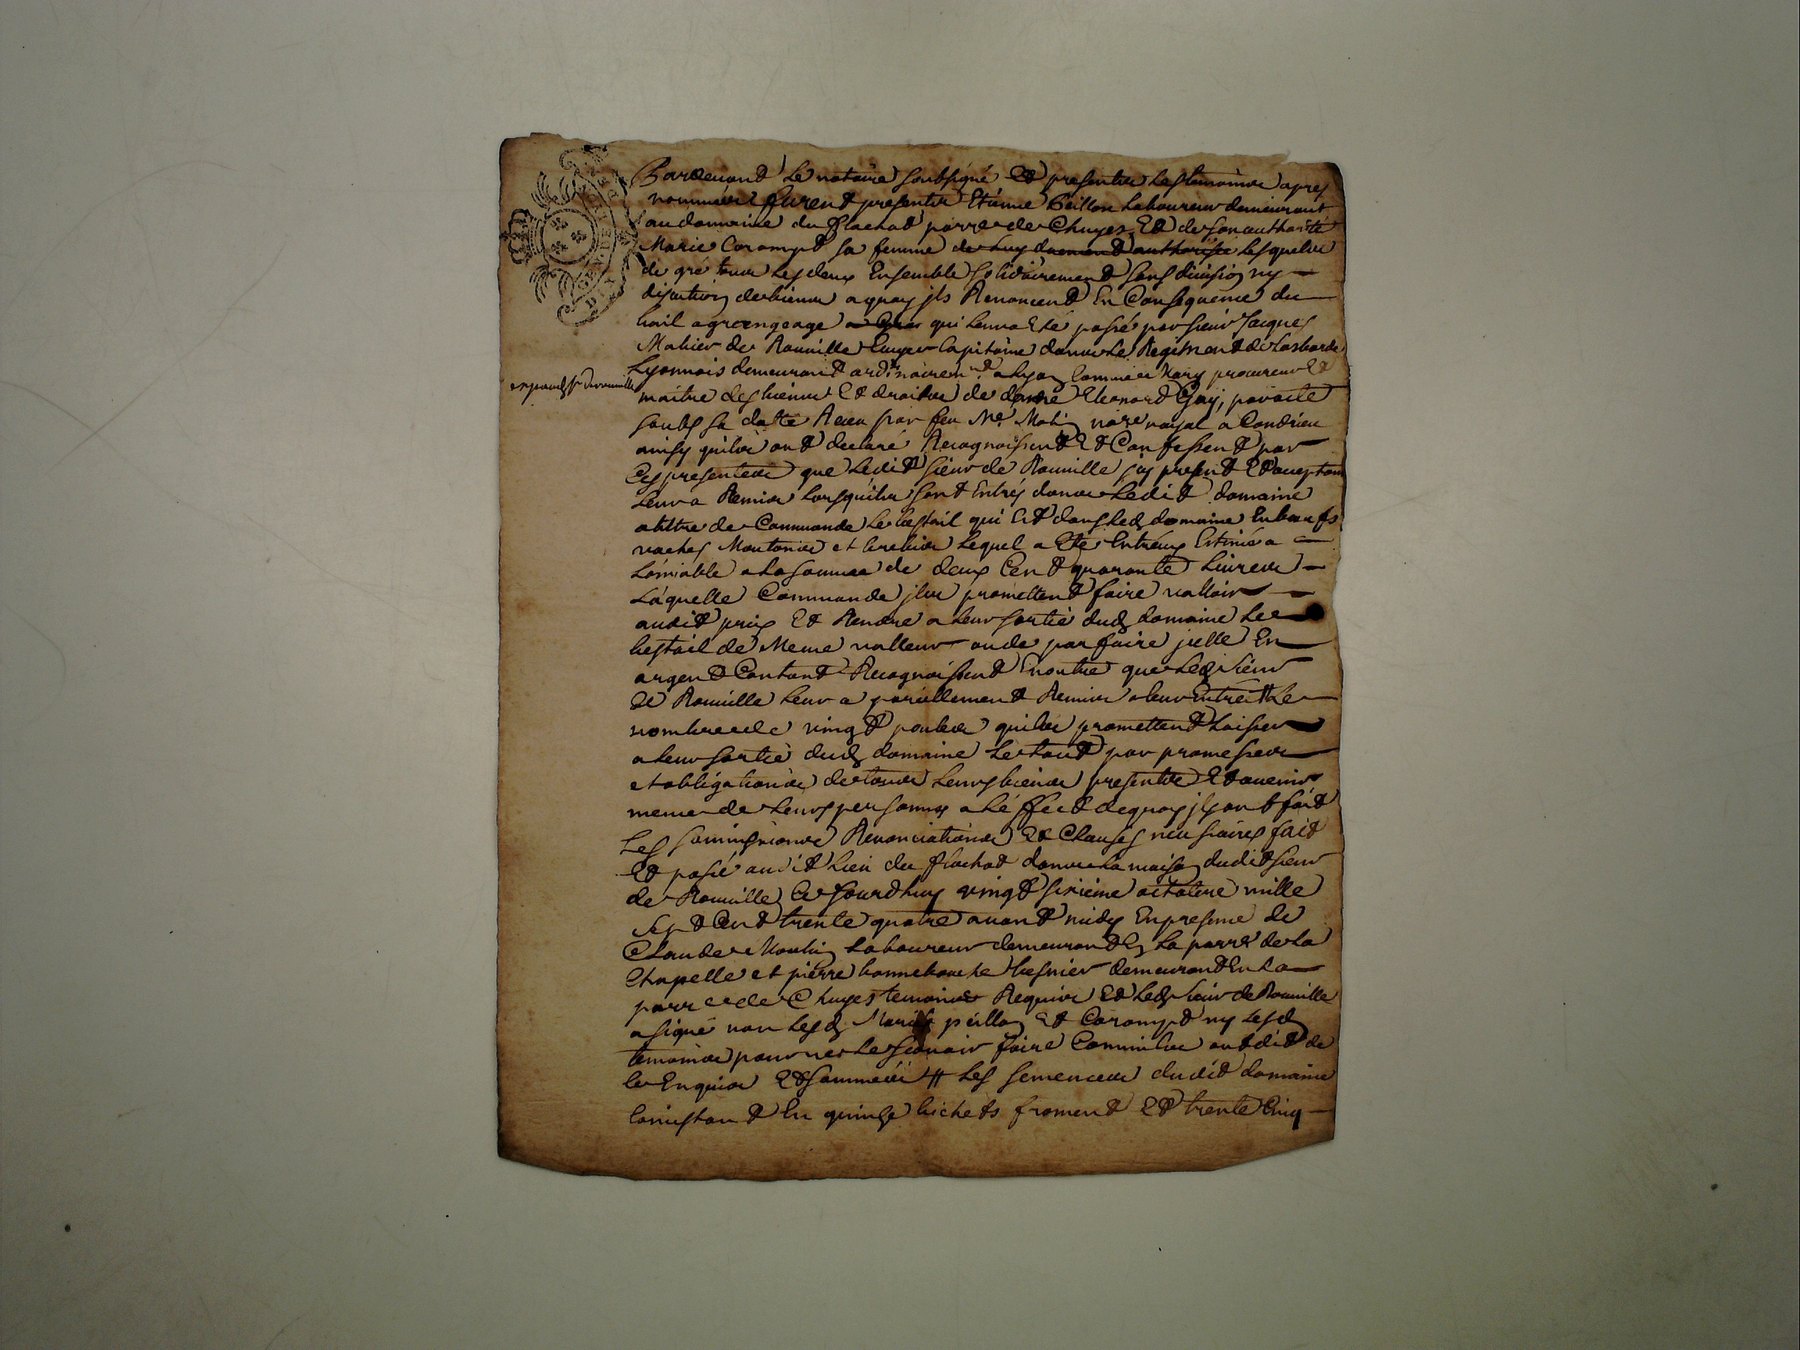 Pardevant Le notaire soubsigné Et presents Les temoins apres
nommés furent presents Etienne Peillon Laboureur demeurant
au domaine du flachat parre de Chuyes Et de son authorité
Marie Corompt sa femme de luy duement authorisée Lesquels
de gré tous Les deux Ensemble solidairement sans division ny
discution de biens a quoy ils Renoncent En Consequence du
bail a grangeage qui Leur a Eté passé par sieur Jacques
Mahier de Rouville Ecuyer Capitaine dans Le Regiment de
Lyonnois demeurant ordinairemnt a Lyon Comme mary procureur Et
maitre des biens Et droits de dame Eleonard Gay, par acte
soubs sa datte Receu par feu Me noire royal a Condrieu
ainsy quils ont declaré Recognoissent Et Confessent par
Ces presentes que Ledit sieur de Rouville icy present Et acceptant
Leur a Remis Lorsquils sont Entrés dans Ledit domaine
a tiltre de Commande Le bestail qui Est dans Led domaine En boeufs
vaches Moutons et brebis Lequel a Eté Entreux Estimé a
Lamiable a La somme de deux Cent quarante Livres
Laquelle Commande ils promettent faire valloir
audit prix Et Rendre a Leur sortie dud domaine Le
bestail de Meme valleur ou de parfaire icelle En
argent Contant Recognoissent En outre que Led sieur
de Rouville Leur a pareillement Remis a leur Entrée Le
nombre de vingt poules quils promettent Laisser
a Leur sortie dud domaine Le tout par promesses
et obligations de tous Leurs biens presents Et avenir
meme de Leurs personnes a Leffect dequoy ils ont fait
Les soumissions Renonciations Et Clauses necessaires fait
Et passé audit Lieu du flachat dans La maison dudit sieur
de Rouville Ce jourdhuy vingt sixieme octobre mille
sept Cent trente quatre avant midy En presence de
Claude Moulin Laboureur demeurant En La parre de La
Chapelle et pierre bonnebouche demeurant En La
parre de Chuyes temoins Requis Et Led sieur de Rouville
a signé non Lesd peillon Et Corompt ny Lesd
temoins pour ne Le scavoir faire Comme ils ont dit de
Ce Enquis Et sommés # Les semences dudit domaine
Consistant En quinze bichets froment Et trente Cinq